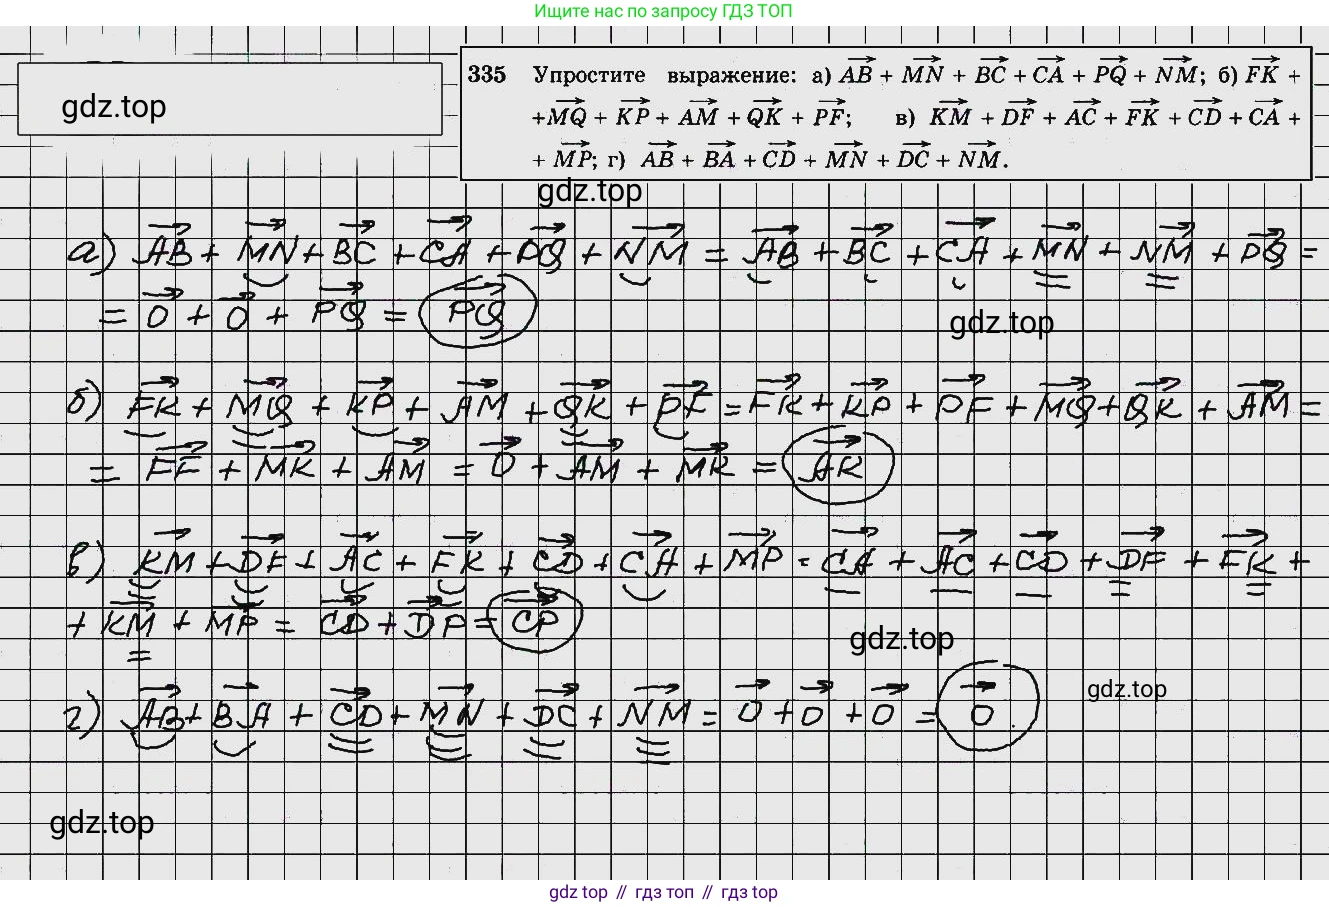 Ищите нас по запросу ГДЗ ТОП
gdz.top
335 Упростите выражение: а) AB + MN + BC + CA + PQ + NM; б) FK +
+MQ + KP + AM + QK + PF; в) KM + DF + AC + FK + CD + CA +
+ MP; г) AB + BA + CD + MN + DC + NM.
gdz.top
а) AB + MN + BC + CA + PQ + NM = AB + BC + CA + MN + NM + PQ =
= 0 + 0 + PQ = PQ
gdz.top
б) FK + MQ + KP + AM + QK + PF = FK + KP + PF + MQ + QK + AM =
= FF + MK + AM = 0 + AM + MK = AK
в) KM + DF + AC + FK + CD + CA + MP = CA + AC + CD + DF + FK +
+ KM + MP = CD + DP = CP
gdz.top
gdz.top
г) AB + BA + CD + MN + DC + NM = 0 + 0 + 0 = 0
gdz.top
gdz top // гдз топ // gdz top